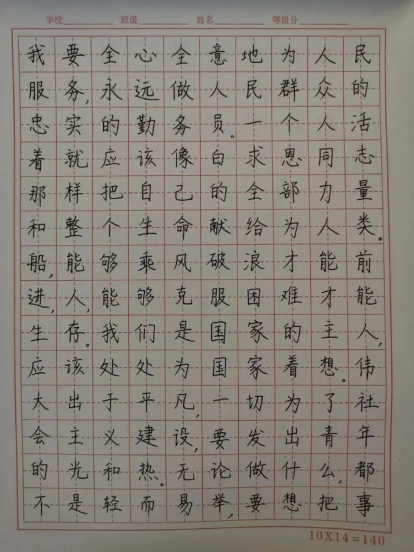 学校 班级 姓名 等级分
我要全心全意地为人民
服务,永远做人民群众的
忠实的勤务员。一个人活
着就应该像白求恩同志
那样把自己的全部力量
和整个生命献给为人类。
船,能够乘风破浪才能前
进,人,能够克服困难才能
生存。我们是国家的主人,
应该处处为国家着想。伟
大出于平凡,一切为了社
会主义建设,要发出青年
的光和热。无论做什么,都
不是轻而易举,要想把事
10X14=140